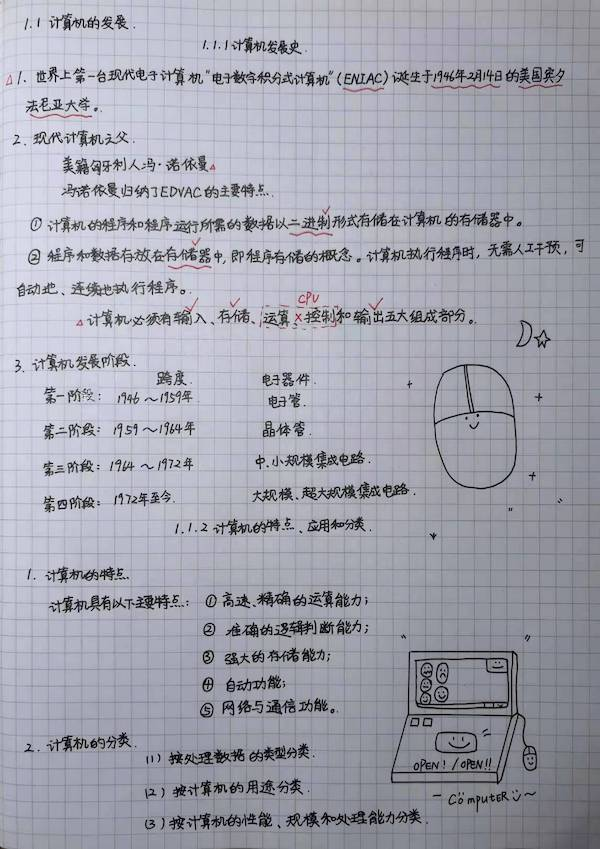 1.1 计算机的发展.
1.1.1 计算机发展史.
△1. 世界上第一台现代电子计算机"电子数字积分式计算机"(ENIAC)诞生于1946年2月14日的美国宾夕
法尼亚大学。
2. 现代计算机之父.
美籍匈牙利人冯·诺依曼△
冯诺依曼归纳了EDVAC的主要特点.
① 计算机的程序和程序运行所需的数据以二进制形式存储在计算机的存储器中。
② 程序和数据存放在存储器中,即程序存储的概念。计算机执行程序时,无需人工干预,可
自动地、连续地执行程序。
CPU
△计算机必须有输入、存储、运算、控制和输出五大组成部分。
3. 计算机发展阶段.
跨度. 电子器件.
第一阶段: 1946～1959年. 电子管.
第二阶段: 1959～1964年. 晶体管.
第三阶段: 1964～1972年. 中、小规模集成电路.
第四阶段: 1972年至今. 大规模、超大规模集成电路.
1.1.2 计算机的特点、应用和分类.
1. 计算机的特点.
计算机具有以下主要特点: ① 高速、精确的运算能力;
② 准确的逻辑判断能力;
③ 强大的存储能力;
④ 自动功能;
⑤ 网络与通信功能。
2. 计算机的分类.
(1) 按处理数据的类型分类.
(2) 按计算机的用途分类.
(3) 按计算机的性能、规模和处理能力分类.
OPEN! / OPEN!!
— COmputeR ～